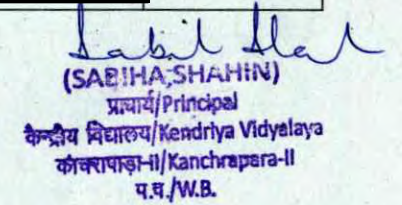 (SABIHA SHAHIN)
प्राचार्य/Principal
केन्द्रीय विद्यालय/Kendriya Vidyalaya
कांचरापाड़ा-II/Kanchrapara-II
प.ब./W.B.